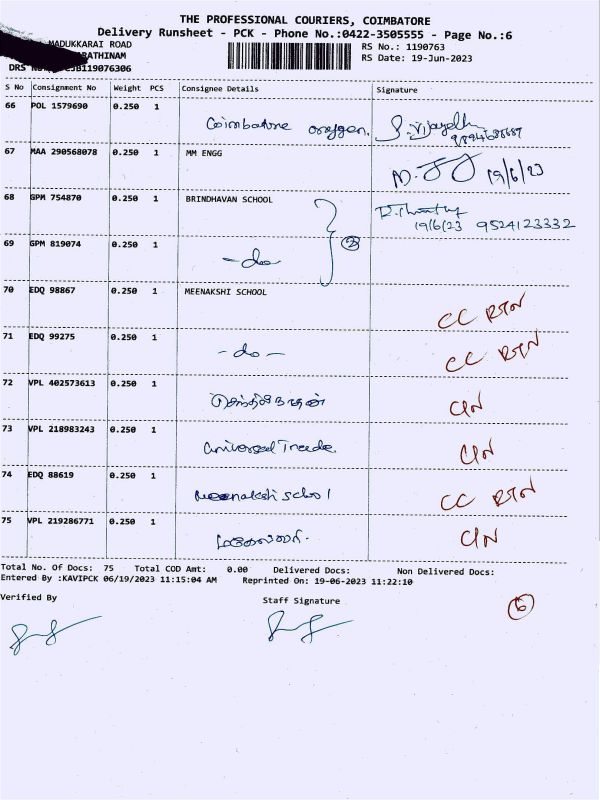 THE PROFESSIONAL COURIERS, COIMBATORE
Delivery Runsheet - PCK - Phone No.:0422-3505555 - Page No.:6
MADUKKARAI ROAD
RS No.: 1190763
RS Date: 19-Jun-2023
DRS
S No Consignment No Weight PCS Consignee Details Signature
66 POL 1579690 0.250 1 Coimbatore oxygen.
67 MAA 290568078 0.250 1 MM ENGG 19/6/23
68 GPM 754870 0.250 1 BRINDHAVAN SCHOOL
19/6/23 9524123332
69 GPM 819074 0.250 1 -do 2
70 EDQ 98867 0.250 1 MEENAKSHI SCHOOL CC RTN
71 EDQ 99275 0.250 1 -do- CC RTN
72 VPL 402573613 0.250 1 CIN
73 VPL 218983243 0.250 1 universal Trade. CIN
74 EDQ 88619 0.250 1 Meenakshi school CC RTN
75 VPL 219286771 0.250 1 CIN
Total No. Of Docs: 75 Total COD Amt: 0.00 Delivered Docs: Non Delivered Docs:
Entered By :KAVIPCK 06/19/2023 11:15:04 AM Reprinted On: 19-06-2023 11:22:10
Verified By Staff Signature
6